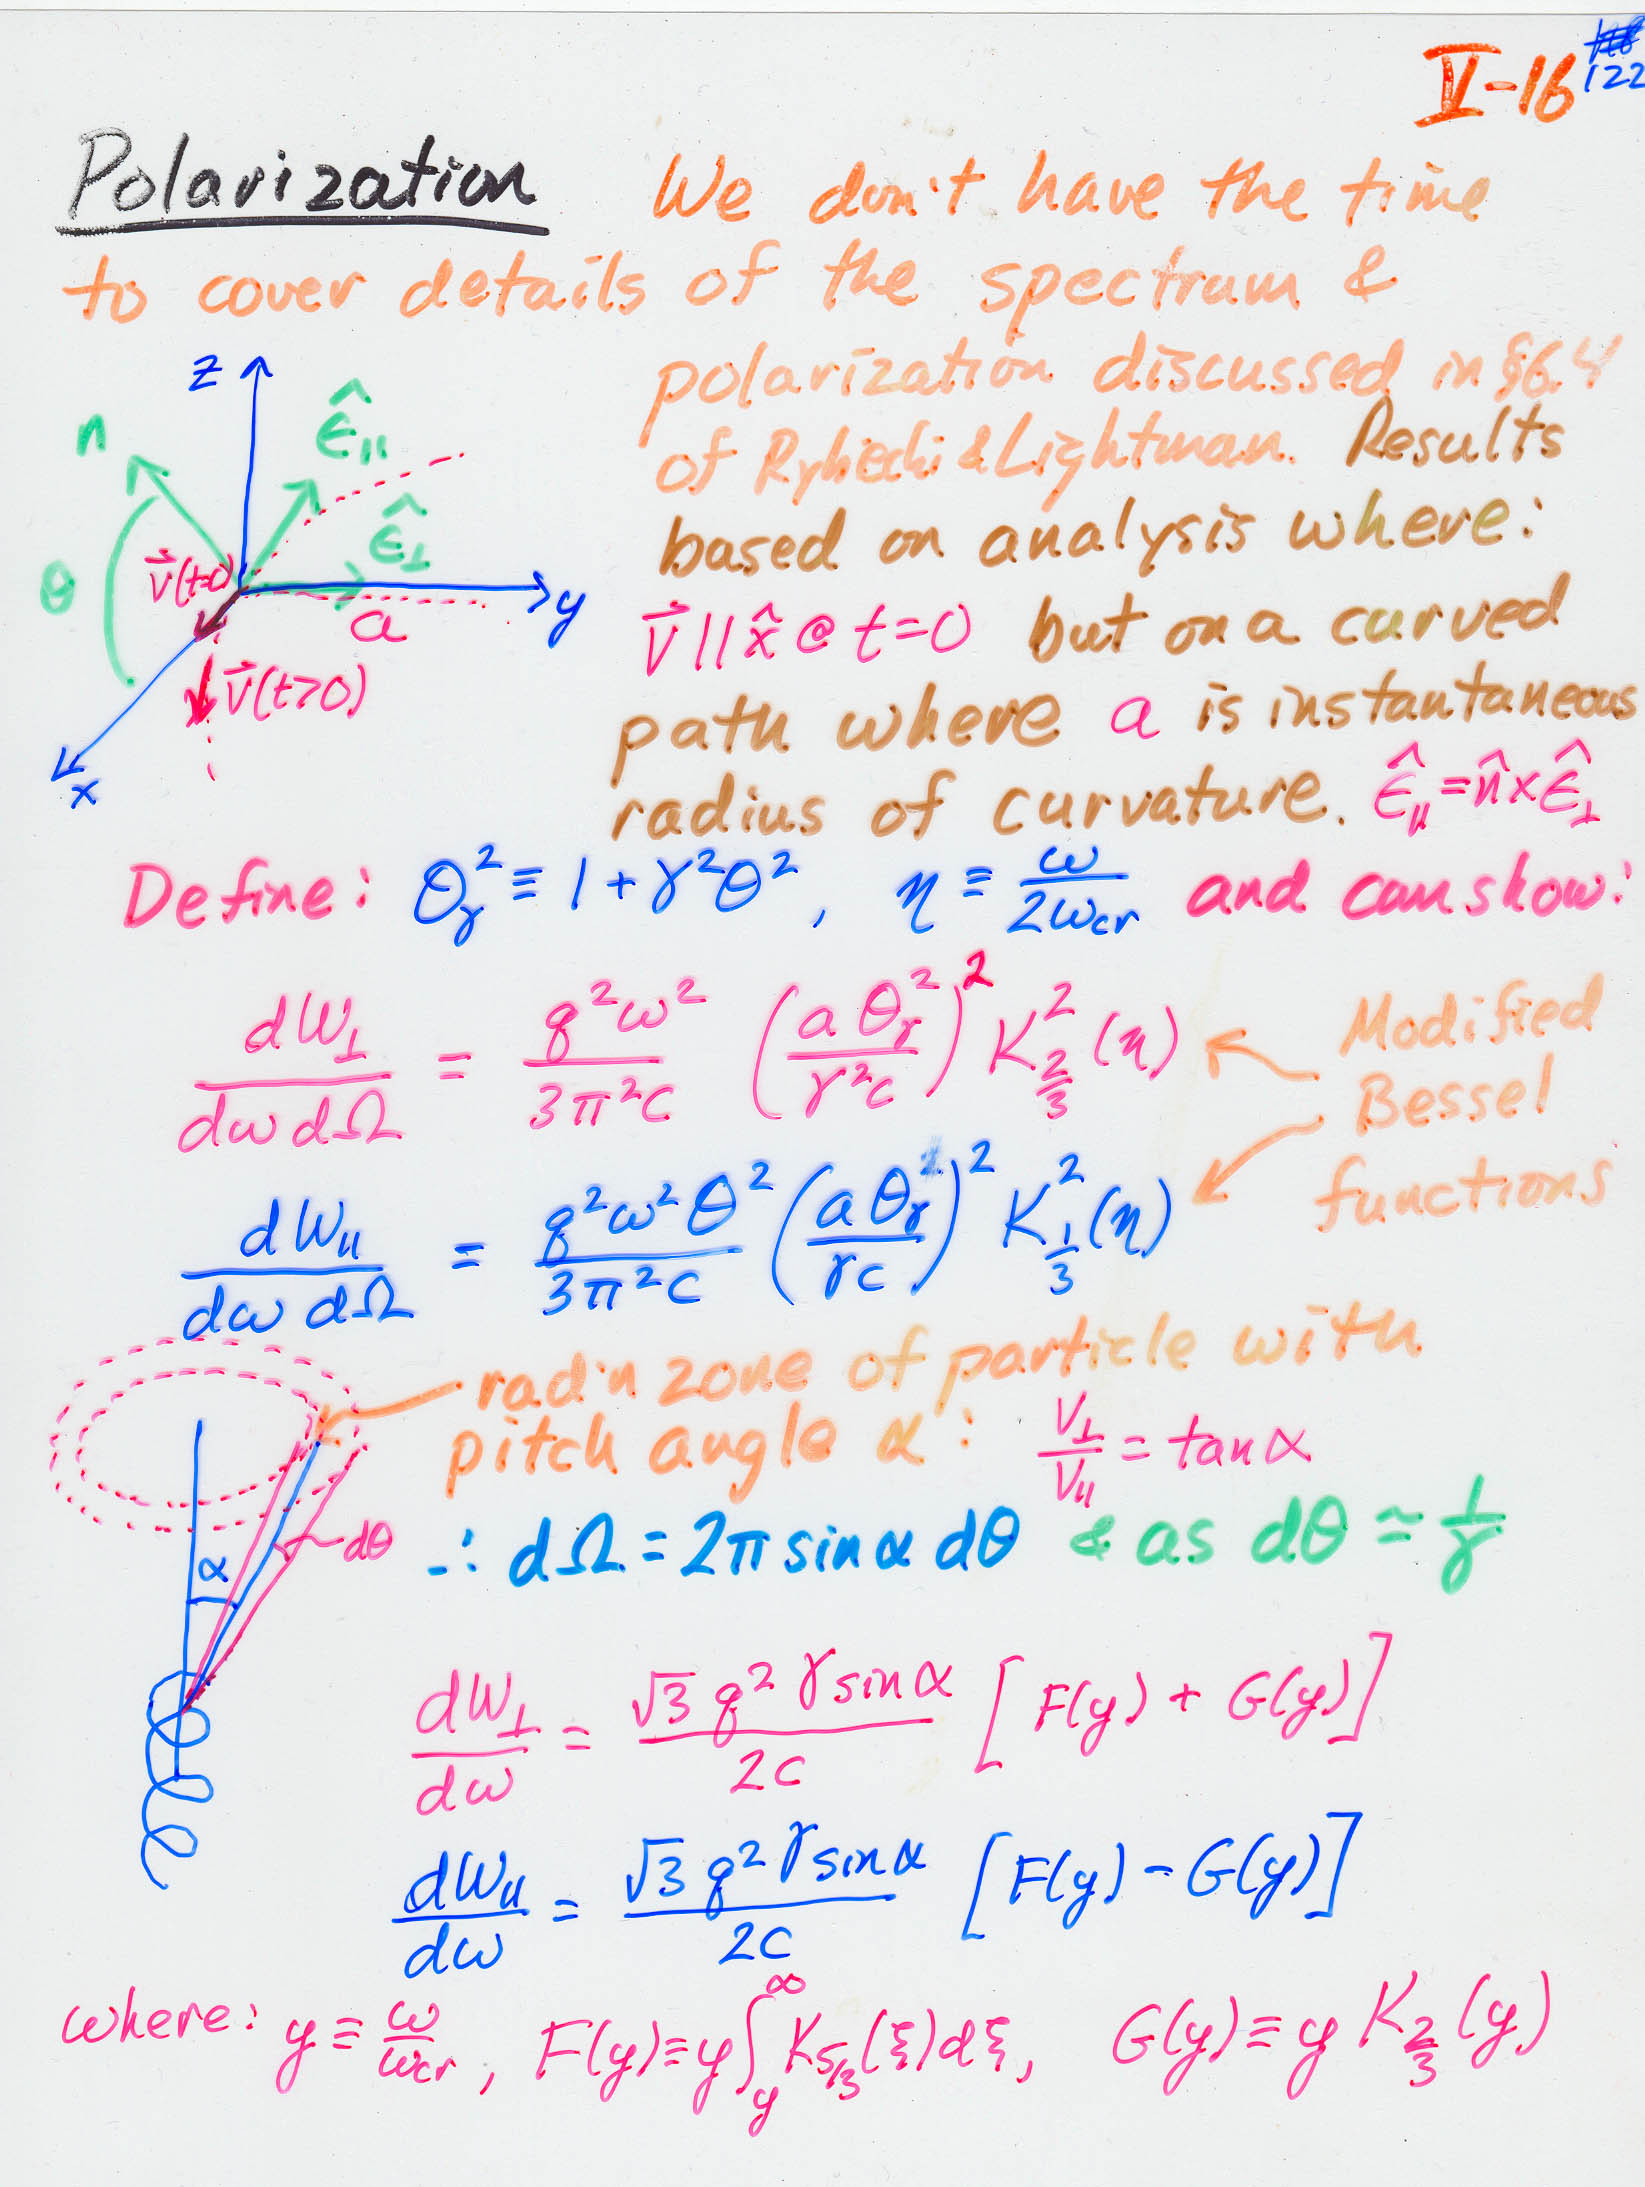 V-16 122
Polarization We don't have the time
to cover details of the spectrum &
polarization discussed in §6.4
of Rybicki & Lightman. Results
based on analysis where:
v⃗ || x̂ @ t=0 but on a curved
path where a is instantaneous
radius of curvature. ε̂_|| = n̂ × ε̂_⊥
z
n
ε̂_||
ε̂_⊥
θ
v⃗(t=0)
a
y
v⃗(t>0)
x
Define: θ_γ² ≡ 1 + γ²θ², η ≡ ω/2ω_cr and can show:
dW_⊥/dω dΩ = q²ω²/3π²c (a θ_γ²/γ²c)² K²_{2/3}(η)
Modified
Bessel
functions
dW_||/dω dΩ = q²ω²θ²/3π²c (a θ_γ/γc)² K²_{1/3}(η)
rad'n zone of particle with
pitch angle α: V_⊥/V_|| = tan α
α
dθ
∴ dΩ = 2π sin α dθ & as dθ ≃ 1/γ
dW_⊥/dω = √3 q² γ sin α/2c [F(y) + G(y)]
dW_||/dω = √3 q² γ sin α/2c [F(y) - G(y)]
where: y ≡ ω/ω_cr, F(y) ≡ y∫_y^∞ K_{5/3}(ξ)dξ, G(y) ≡ y K_{2/3}(y)